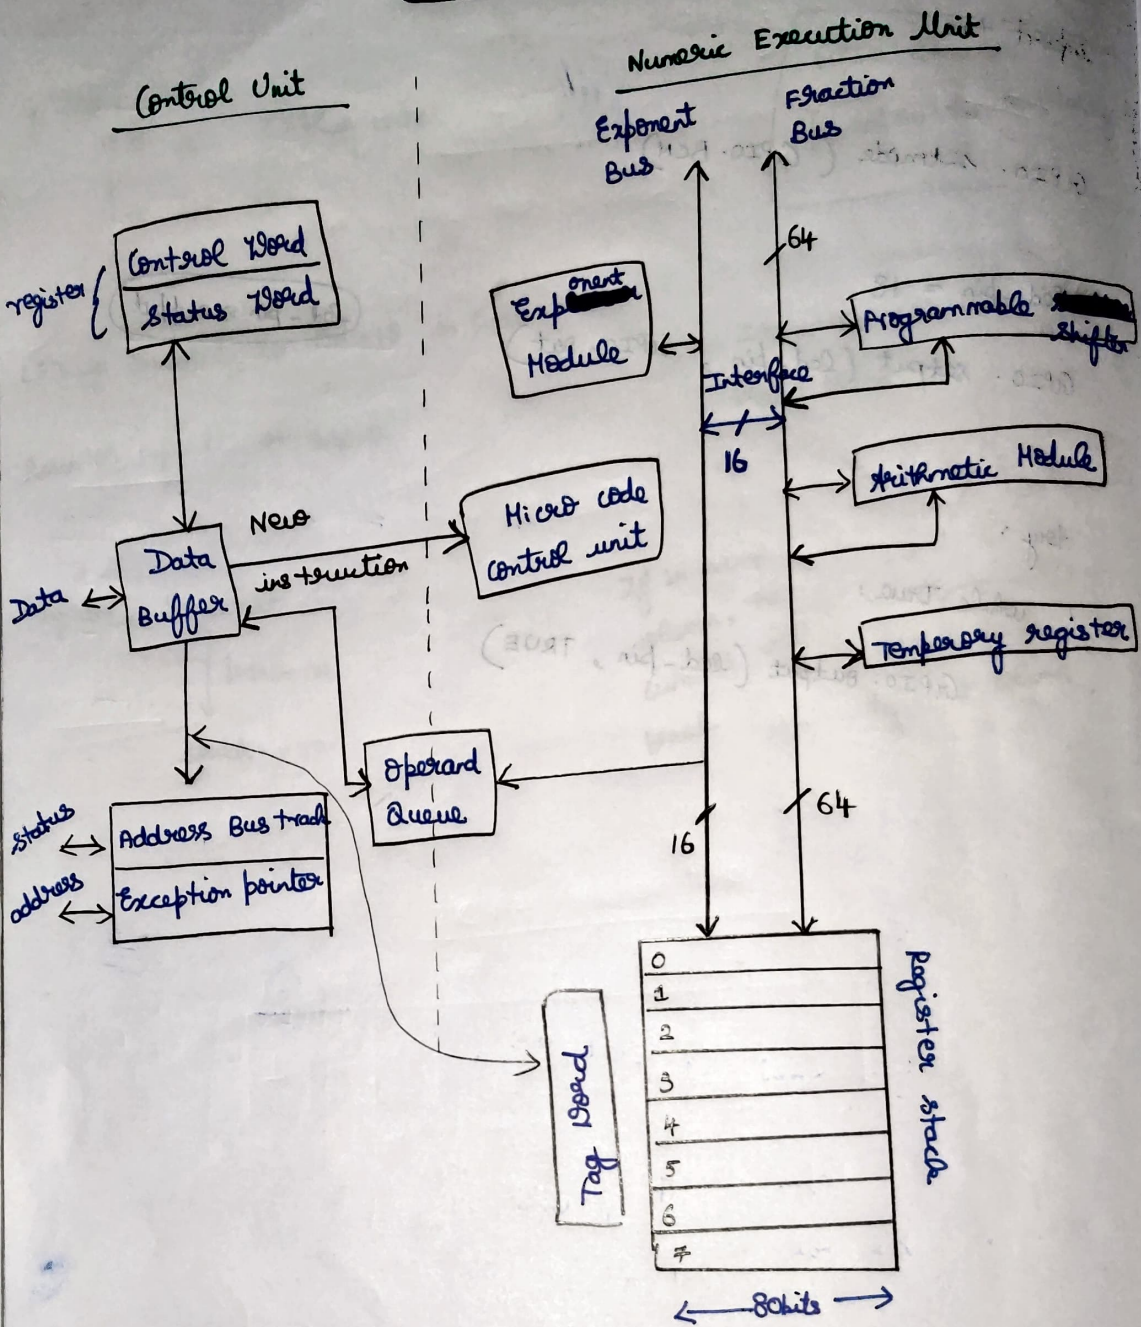 Control Unit
Numeric Execution Unit
Exponent
Bus
Fraction
Bus
64
register
Control Word
Status Word
Exponent
Module
Programmable
Shifter
Interface
16
Arithmetic Module
New
instruction
Micro code
control unit
Data
Data
Buffer
Temperory register
Operand
Queue
16
64
status
address
Address Bus track
Exception pointer
Tag Word
0
1
2
3
4
5
6
7
Register stack
80bits